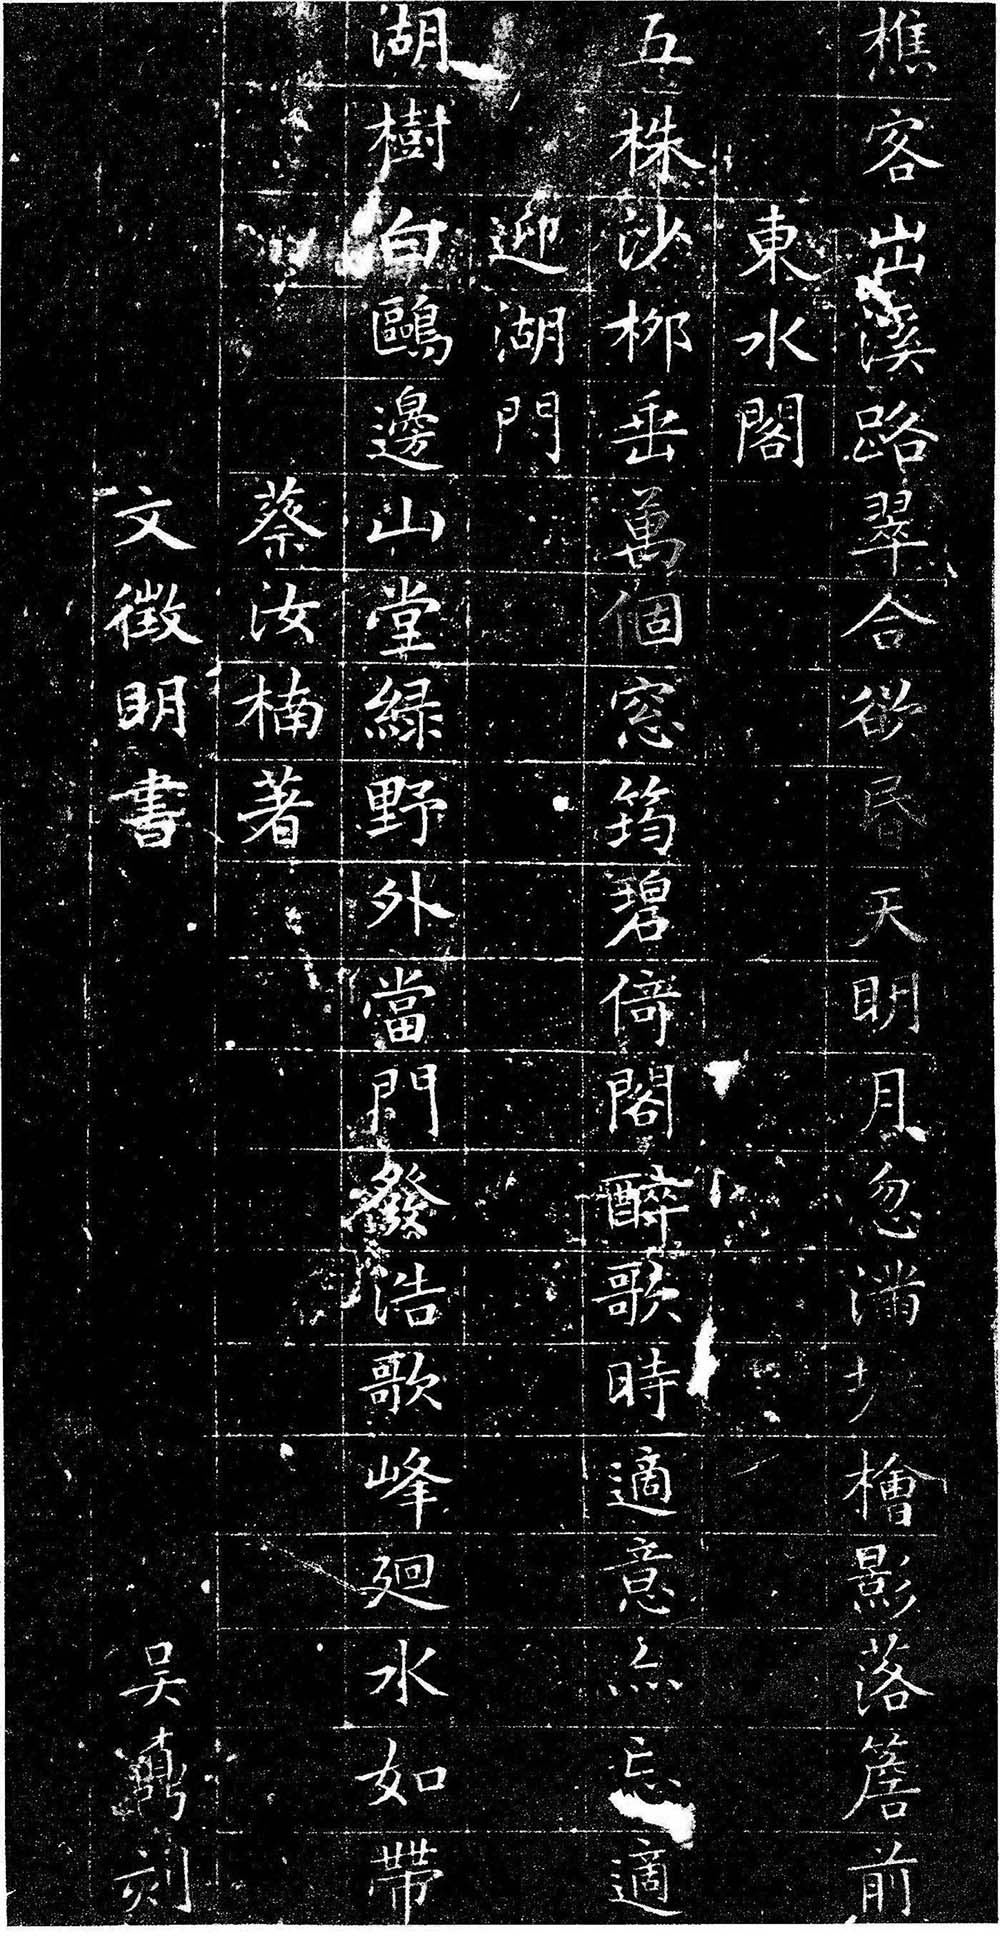 樵客出溪路翠合欲昏天明月忽滿 檜影落簷前
東水閣
五株沙柳垂萬個窓筠碧倚閣醉歌時適意亦忘適
迎湖門
湖樹白鷗邊山堂綠野外當門發浩歌峰廻水如帶
蔡汝楠著
文徵明書
吳鼒刻